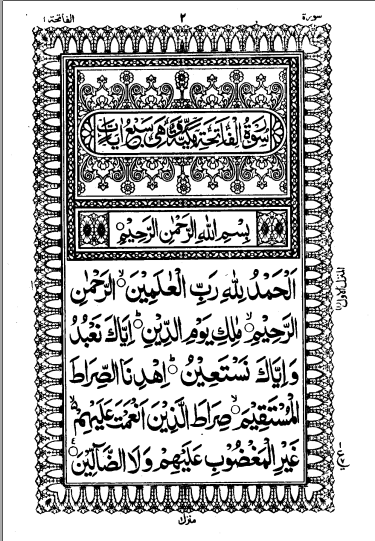 سورة ٢ الفاتحة ١
سورة الفاتحة مكية وهى سبع ايات
بِسْمِ اللهِ الرَّحْمٰنِ الرَّحِيْمِ
اَلْحَمْدُ لِلّٰهِ رَبِّ الْعٰلَمِيْنَ ۙ الرَّحْمٰنِ
الرَّحِيْمِ ۙ مٰلِكِ يَوْمِ الدِّيْنِ ؕ اِيَّاكَ نَعْبُدُ
وَ اِيَّاكَ نَسْتَعِيْنُ ؕ اِهْدِنَا الصِّرَاطَ
الْمُسْتَقِيْمَ ۙ صِرَاطَ الَّذِيْنَ اَنْعَمْتَ عَلَيْهِمْ
غَيْرِ الْمَغْضُوْبِ عَلَيْهِمْ وَلَا الضَّآلِّيْنَ
المنزل الاول
منزل